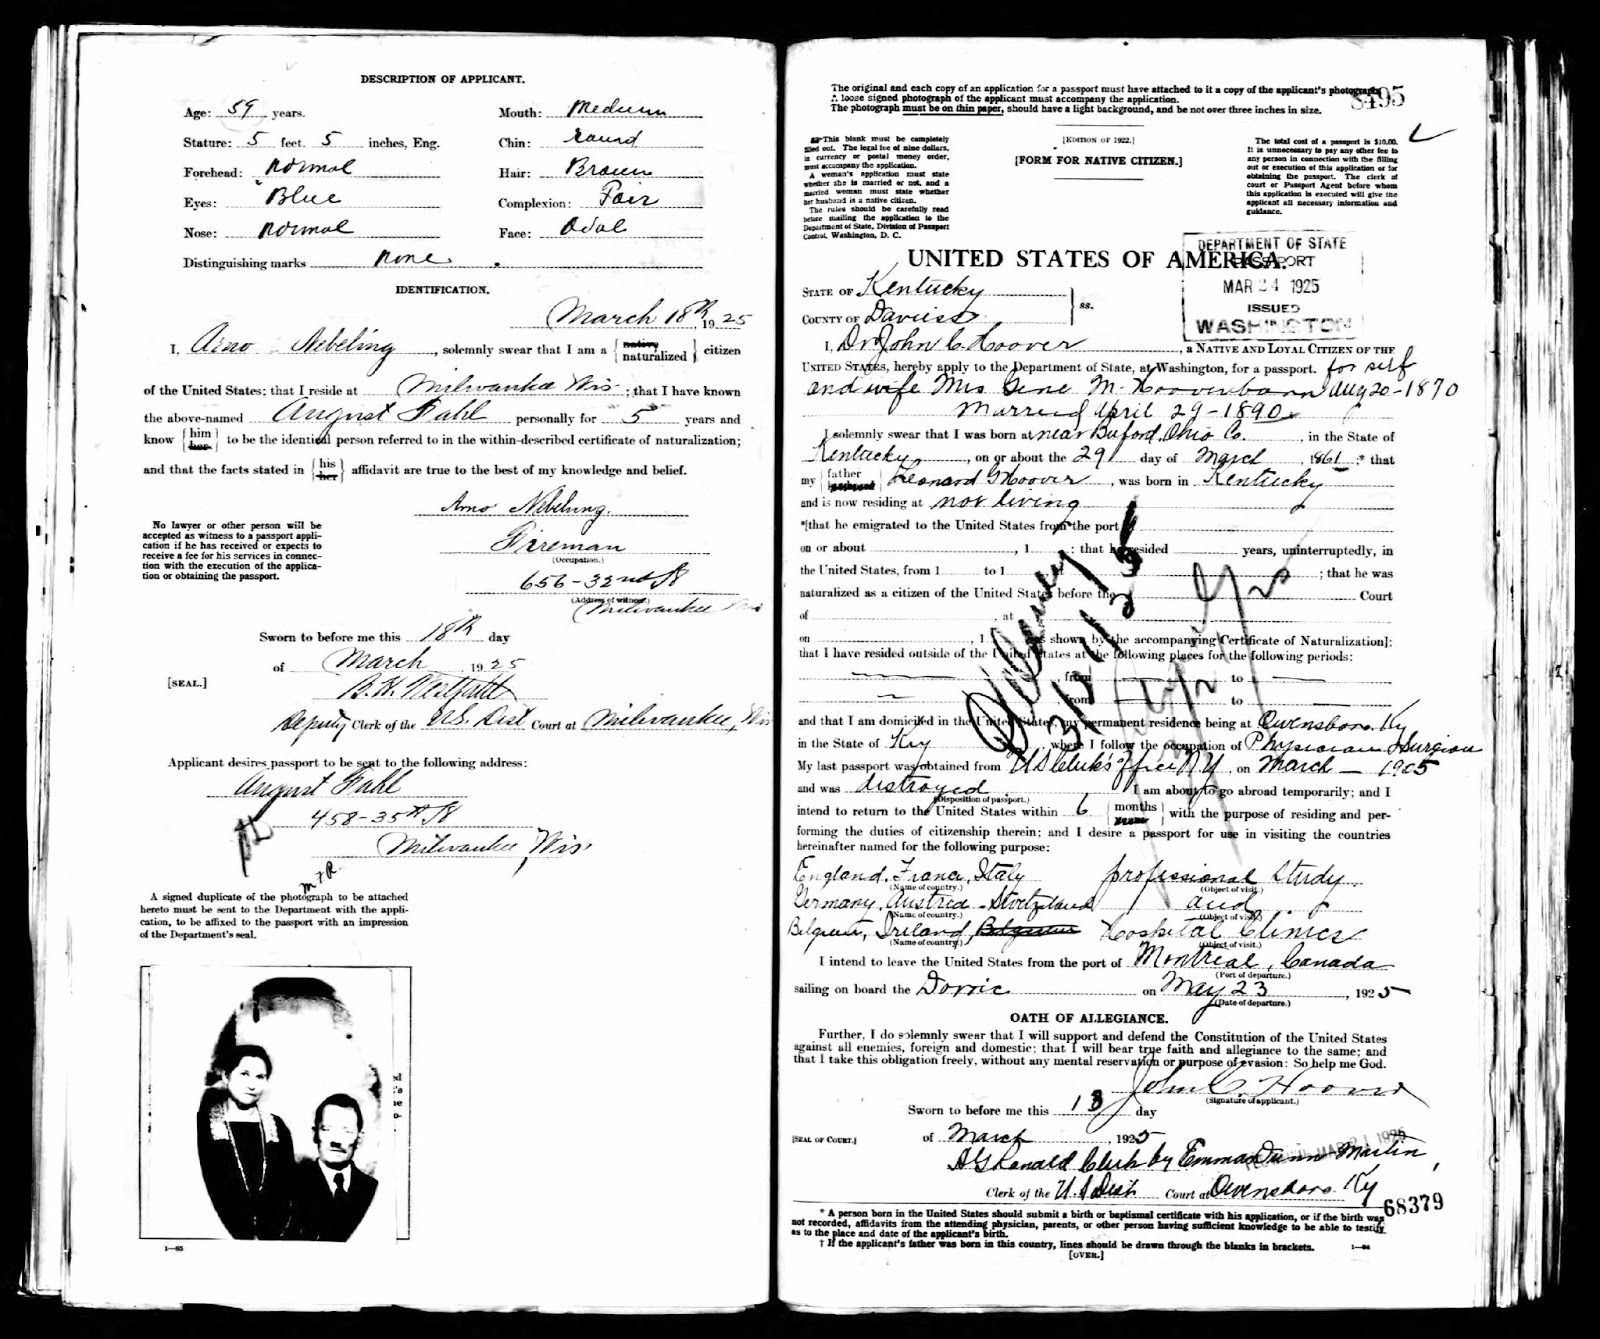 DESCRIPTION OF APPLICANT.
Age: 59 years.
Mouth: Medium
Stature: 5 feet. 5 inches, Eng.
Chin: round
Forehead: Normal
Hair: Brown
Eyes: Blue
Complexion: Fair
Nose: normal
Face: Oval
Distinguishing marks none
IDENTIFICATION.
March 18th, 1925
I, Arno Nebeling, solemnly swear that I am a {native naturalized} citizen
of the United States; that I reside at Milwaukee Wis; that I have known
the above-named August Fahl personally for 5 years and
know {him her} to be the identical person referred to in the within-described certificate of naturalization;
and that the facts stated in {his her} affidavit are true to the best of my knowledge and belief.
Arno Nebeling.
No lawyer or other person will be
accepted as witness to a passport appli-
cation if he has received or expects to
receive a fee for his services in connec-
tion with the execution of the applica-
tion or obtaining the passport.
Fireman
(Occupation.)
656-32nd St
(Address of witness.)
Milwaukee Wis
Sworn to before me this 18th day
of March, 1925
[SEAL.]
B. H. Westfahl
Deputy Clerk of the U.S. Dist Court at Milwaukee, Wis
Applicant desires passport to be sent to the following address:
August Fahl
458-35th St
Milwaukee Wis
A signed duplicate of the photograph to be attached
hereto must be sent to the Department with the appli-
cation, to be affixed to the passport with an impression
of the Department's seal.
1—65
The original and each copy of an application for a passport must have attached to it a copy of the applicant's photograph.
A loose signed photograph of the applicant must accompany the application.
The photograph must be on thin paper, should have a light background, and be not over three inches in size.
8495
This blank must be completely
filled out. The legal fee of nine dollars,
in currency or postal money order,
must accompany the application.
A woman's application must state
whether she is married or not, and a
married woman must state whether
her husband is a native citizen.
The rules should be carefully read
before mailing the application to the
Department of State, Division of Passport
Control, Washington, D. C.
[EDITION OF 1922.]
[FORM FOR NATIVE CITIZEN.]
The total cost of a passport is $10.00.
It is unnecessary to pay any other fee to
any person in connection with the filling
out or execution of this application or for
obtaining the passport. The clerk of
court or Passport Agent before whom
this application is executed will give the
applicant all necessary information and
guidance.
UNITED STATES OF AMERICA.
DEPARTMENT OF STATE
PASSPORT
MAR 24 1925
ISSUED
WASHINGTON
STATE OF Kentucky
COUNTY OF Daviess
ss.
I, Dr John C. Hoover, a NATIVE AND LOYAL CITIZEN OF THE
UNITED STATES, hereby apply to the Department of State, at Washington, for a passport. for self
and wife Mrs Gene M. Hoover born Aug 20-1870
Married April 29-1890
I solemnly swear that I was born at near Buford, Ohio Co., in the State of
Kentucky, on or about the 29 day of March, 1861;* that
my {father husband} Leonard G Hoover, was born in Kentucky
and is now residing at not living
*[that he emigrated to the United States from the port
on or about , 1 ; that he resided years, uninterruptedly, in
the United States, from 1 to 1 ; that he was
naturalized as a citizen of the United States before the Court
of , at
on , 1 as shown by the accompanying Certificate of Naturalization];
that I have resided outside of the United States at the following places for the following periods:
from to
from to
and that I am domiciled in the United States, my permanent residence being at Owensboro Ky
in the State of Ky, where I follow the occupation of Physician Surgion
My last passport was obtained from U S Clerks Office N Y, on March — 1905
and was destroyed I am about to go abroad temporarily; and I
(Disposition of passport.)
intend to return to the United States within 6 {months years} with the purpose of residing and per-
forming the duties of citizenship therein; and I desire a passport for use in visiting the countries
hereinafter named for the following purpose:
England, France, Italy professional Study
(Name of country.) (Object of visit.)
Germany, Austria - Switzeland and
(Name of country.) (Object of visit.)
Belgium, Ireland, Belgium Hospital Clinics
(Name of country.) (Object of visit.)
I intend to leave the United States from the port of Montreal, Canada
(Port of departure.)
sailing on board the Dorric on May 23, 1925
(Date of departure.)
OATH OF ALLEGIANCE.
Further, I do solemnly swear that I will support and defend the Constitution of the United States
against all enemies, foreign and domestic; that I will bear true faith and allegiance to the same; and
that I take this obligation freely, without any mental reservation or purpose of evasion: So help me God.
John C. Hoover
(Signature of applicant.)
Sworn to before me this 13 day
[SEAL OF COURT.]
of March, 1925
MAR 21 1925
A G Ronald Clerk by Emma Dunn Martin,
Clerk of the U. S Dist Court at Owensboro Ky
68379
* A person born in the United States should submit a birth or baptismal certificate with his application, or if the birth was
not recorded, affidavits from the attending physician, parents, or other person having sufficient knowledge to be able to testify
as to the place and date of the applicant's birth.
† If the applicant's father was born in this country, lines should be drawn through the blanks in brackets.
[OVER.]